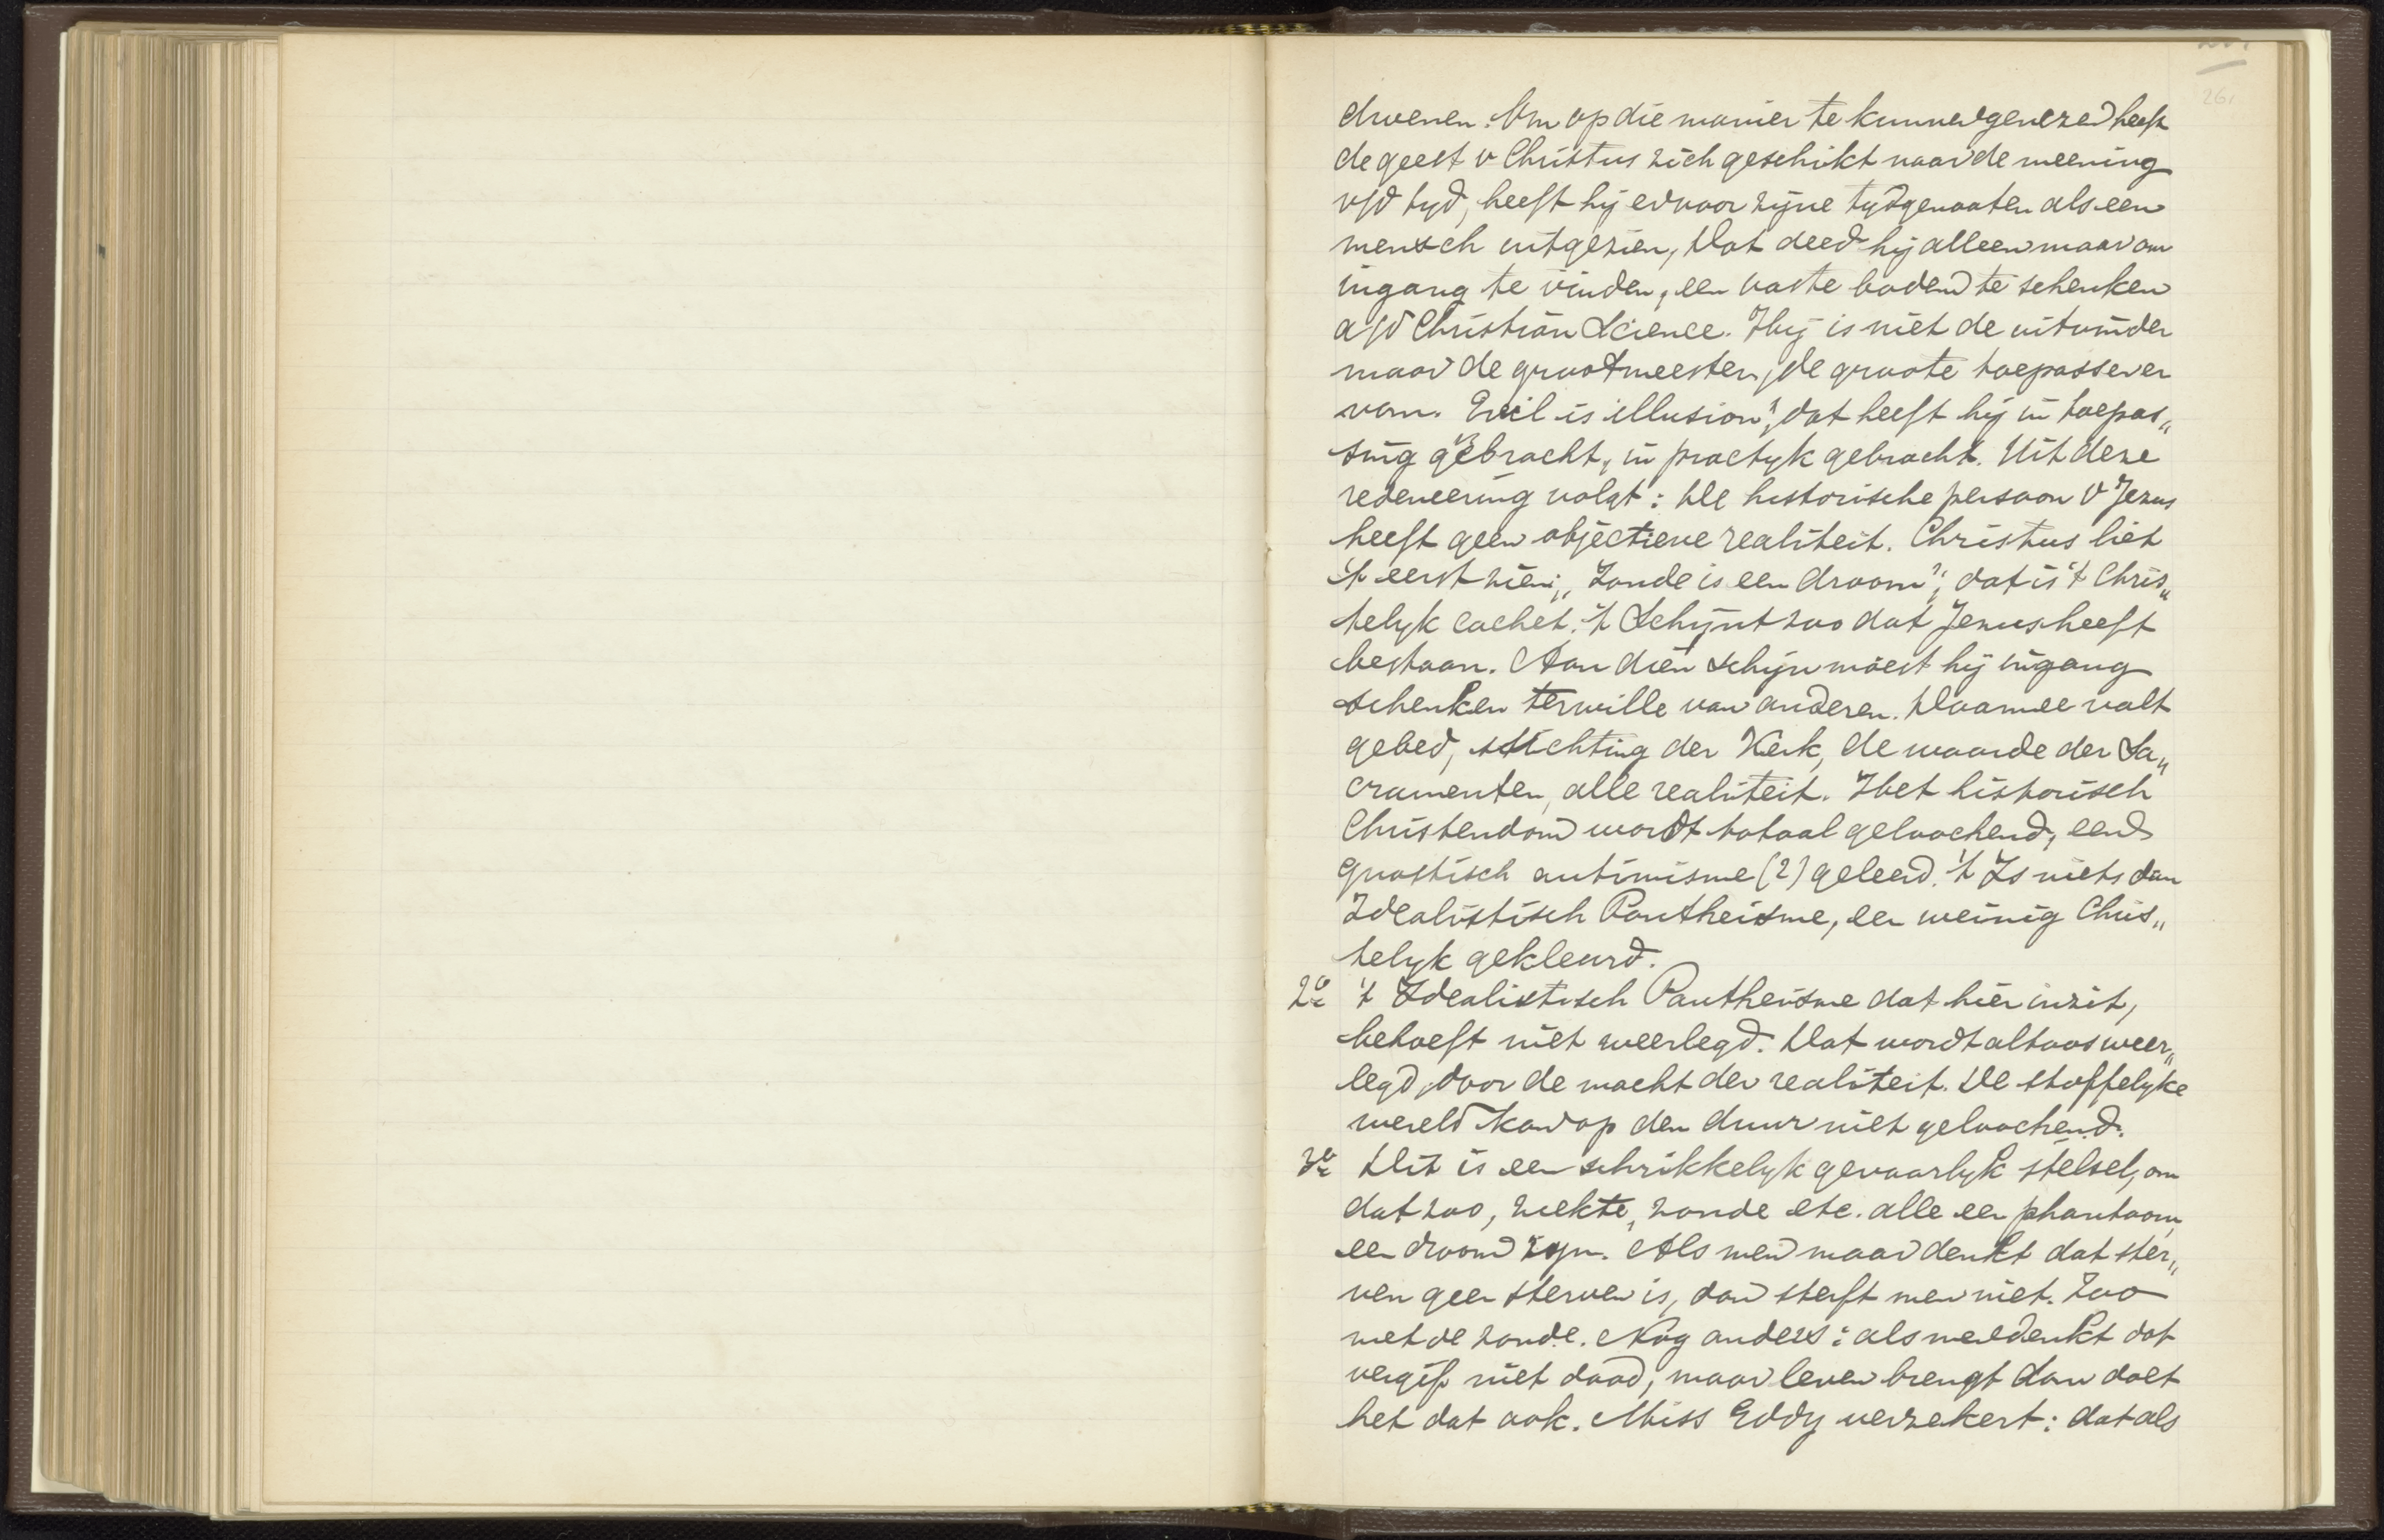 26.
dwenen. Om op die manier te kunnen genezen heeft
de geest v Christus zich geschikt naar de meening
v/d tyd, heeft hij er voor zijne tydgenooten als een
mensch uitgezien, Dat deed hij alleen maar om
ingang te vinden, een vaste bodem te schenken
a/d Christian Science. Hij is niet de uitvinder
maar de grootmeester, de groote toepassever
van. Evil is illusion", dat heeft hij in toepas„
sing gebracht, in practyk gebracht. Uit deze
redeneering volgt: De historische persoon v Jezus
heeft geen objectieve realiteit. Christus liet
't eerst zien; „Zonde is een droom"; dat is 't Chris„
telyk cachet. 't Schijnt zoo dat Jezus heeft
bestaan. Aan dien schijn moest hij ingang
schenken terwille van anderen. Daarmee valt
gebed, stichting der Kerk, de waarde der Sa„
cramenten, alle realiteit. Het historisch
Christendom wordt totaal geloochend, een
gnostisch antimisme (?) geleerd. 't Is niets dan
Idealistisch Pantheisme, een weinig Chris„
telyk gekleurd.
2e 't Idealistisch Pantheisme dat hier inzit,
behoeft niet weerlegd. Dat wordt altoos weer„
legd, door de macht der realiteit. De stoffelyke
wereld kan op den duur niet geloochend.
3e Dit is een schrikkelyk gevaarlyk stelsel, om
dat zoo, ziekte, zonde etc. alle een phantoom,
een droom zyn. Als men maar denkt dat ster„
ven geen sterven is, dan sterft men niet. Zoo
met de zonde. Nog anders: als men denkt dat
vergif niet dood, maar leven brengt dan doet
het dat ook. Miss Eddy verzekert: dat als